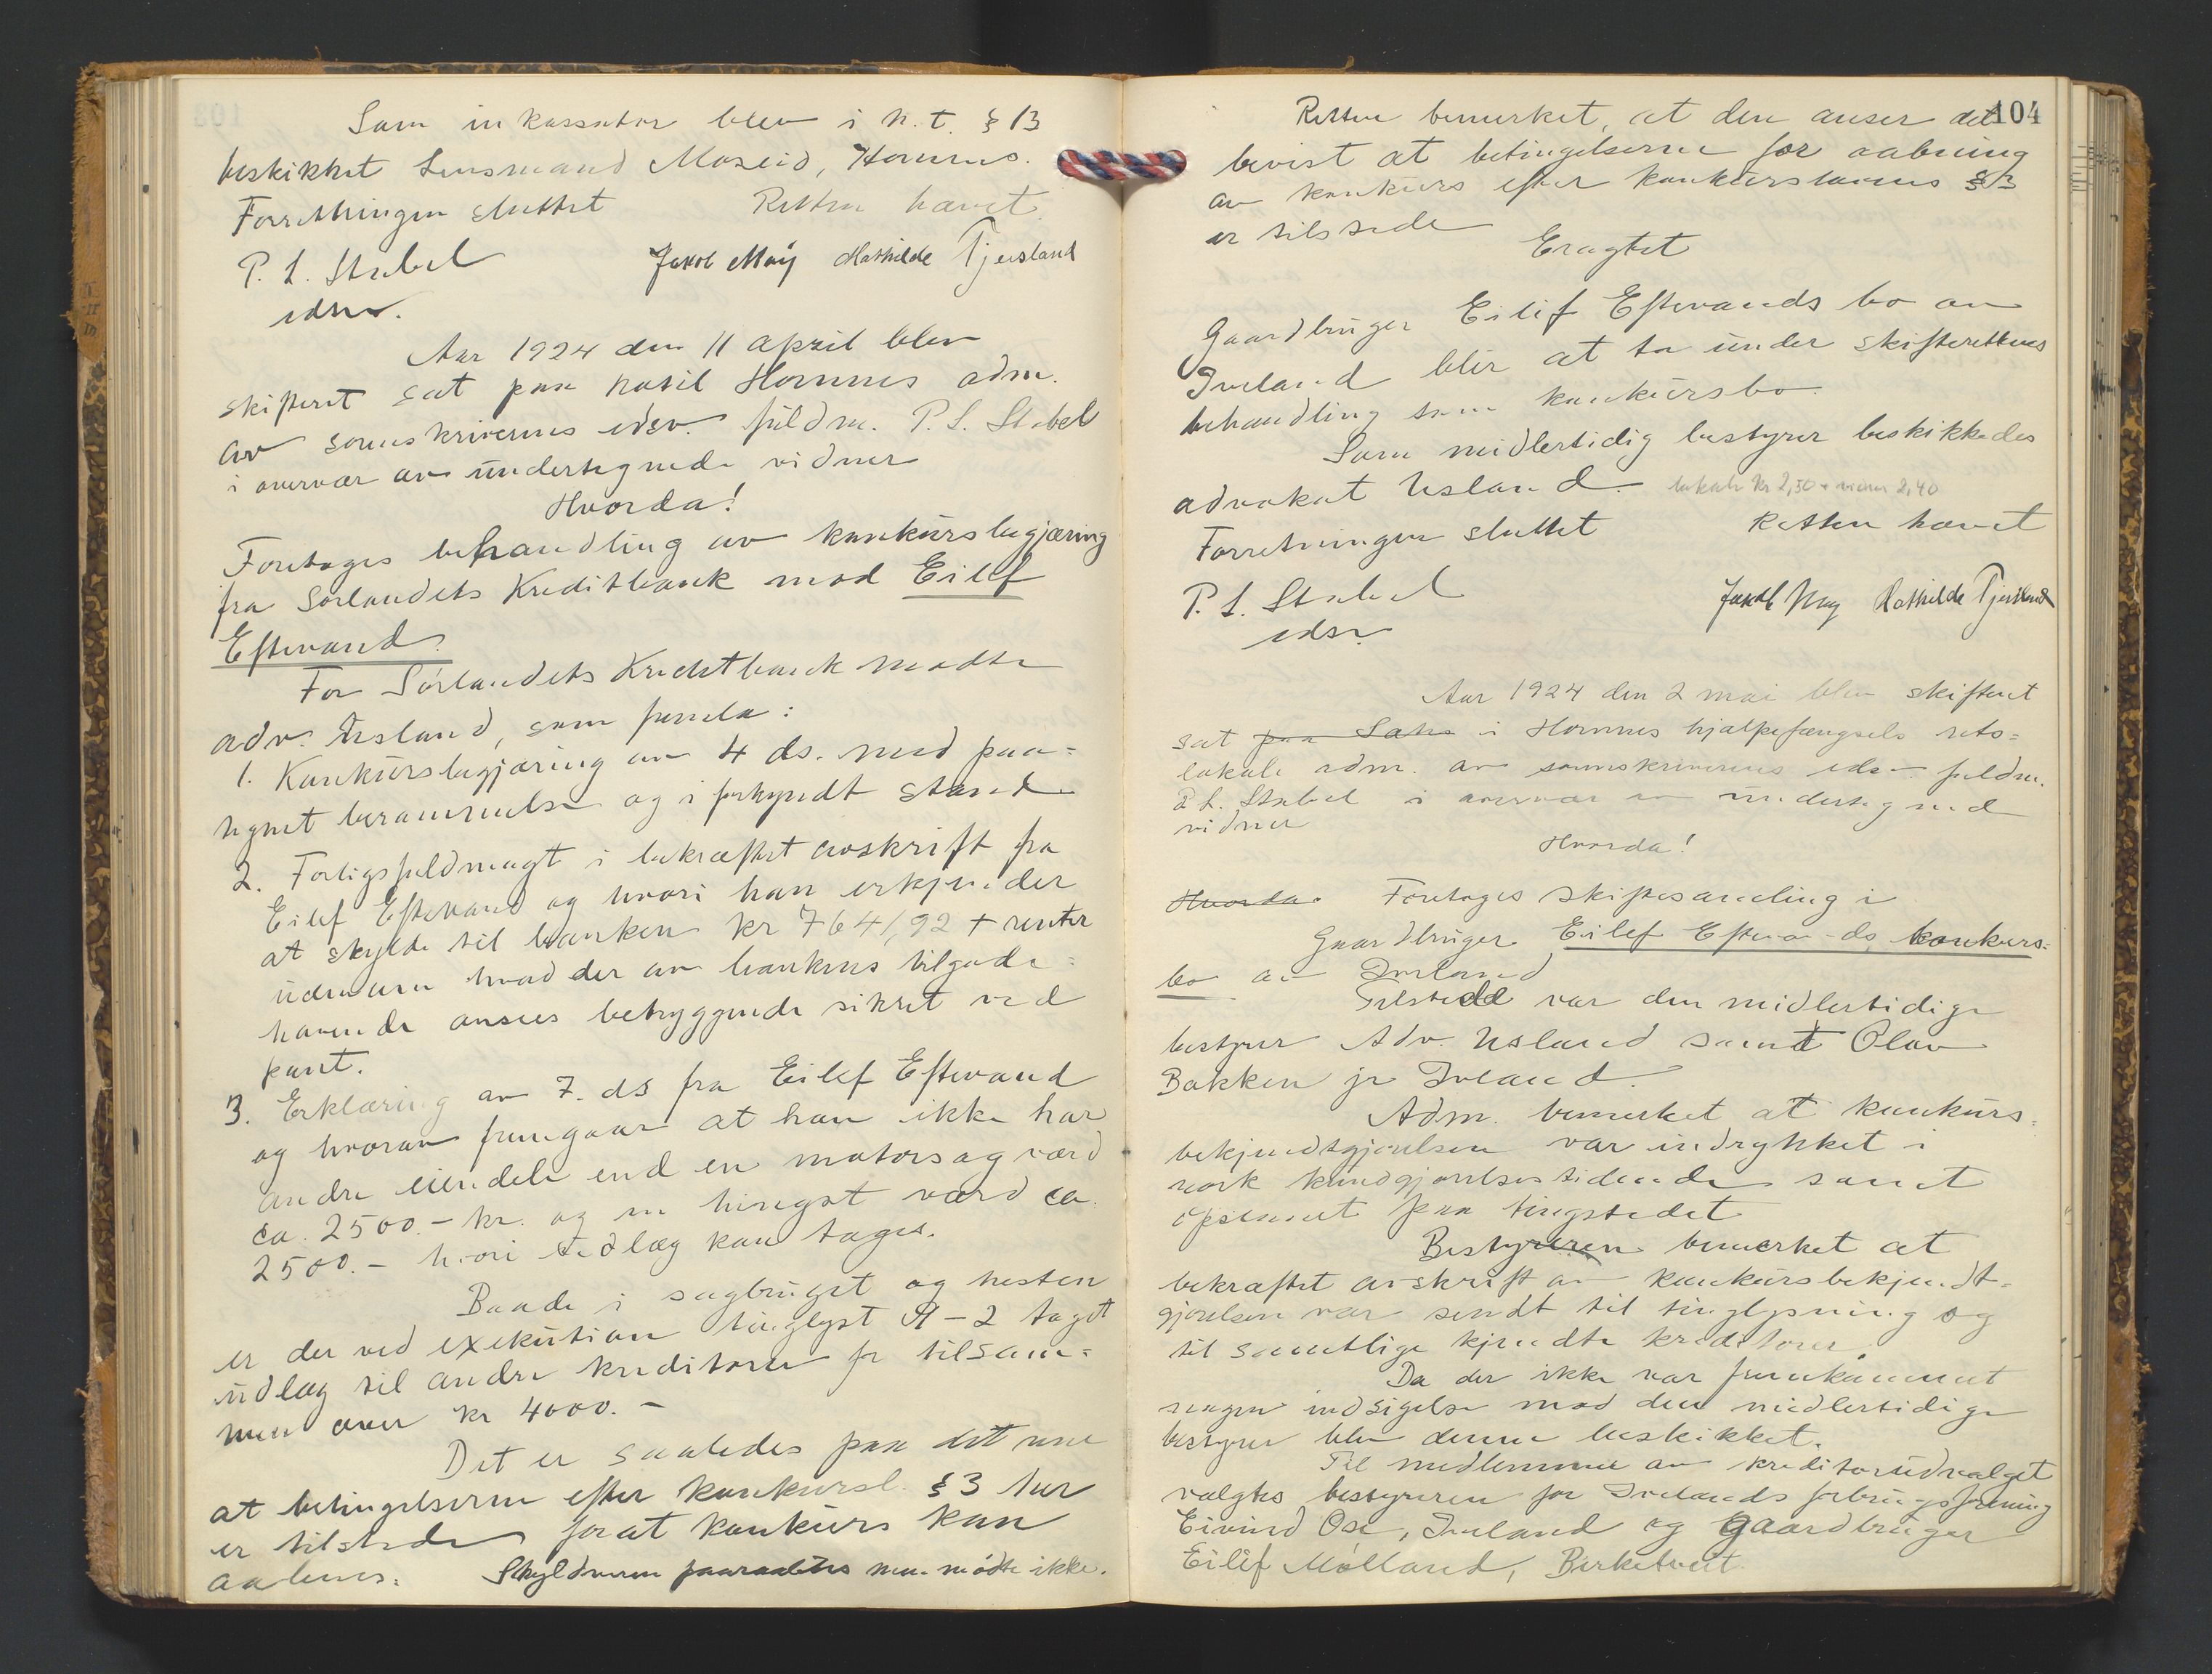 Som inkassator blev i h.t. § 13
beskikket Lensmand Moseid, Hornnes.
Forretningen sluttet Retten hævet
P. L. Stabel Jakob Mæy Mathilde Tjersland
edsv.
Aar 1924 den 11 april blev
skifteret sat paa hotil Hornnes adm.
av sorenskriverens edsv. fuldm. P. L. Stabel
i overvær av undertegnede vidner
Hvorda!
Foretoges behandling av konkursbegjæring
fra Sørlandets Kreditbank mod Eilef
Eftevand.
For Sørlandets Kreditbank mødte
adv. Usland, som fremla:
1. Konkursbegjæring av 4 ds. med paa=
tegnet berammelse og i forkyndt stand
2. Forligsfuldmagt i bekræftet avskrift fra
Eilef Eftevand og hvori han erkjender
at skylde til banken kr 7641,92 + renter
udenom hvad der av bankens tilgode=
havende ansees betryggende sikret ved
pant.
3. Erklæring av 7. ds fra Eilef Eftevand
og hvorav fremgaar at han ikke har
andre eiendele end en motorsag værd
ca. 2500.- kr. og en hingst værd ca.
2500.- hvori utlæg kan tages.
Baade i sagbruget og hesten
er der ved exekution tinglyst 9-2 taget
utlæg til andre kreditorer for tilsam=
men over kr 4000.-
Det er saaledes paa det rene
at betingelserne efter konkursl. § 3 her
er tilstede forat konkurs kan
aabnes. Skyldneren paaraabtes men mødte ikke.
104
Retten bemerket, at den anser det
bevist at betingelserne for aabning
av konkurs efter konkurslovens § 3
er tilstede
Eragtet
Gaardbruger Eilif Eftevands bo av
Iveland blir at ta under skifterettens
behandling som konkursbo.
Som midlertidig bestyrer beskikkedes
advokat Usland. lokale kr 2,50 + vidner 2,40
Forretningen sluttet Retten hævet
P. L. Stabel Jakob Mæy Mathilde Tjersland
edsv.
Aar 1924 den 2 mai blev skifteret
sat paa i Hornnes hjælpefængsels rets=
lokale adm. av sorenskriverens edsv. fuldm.
P. L. Stabel i overvær av undertegned
vidner
Hvorda!
Hvorda. Foretoges skiftesamling i
Gaardbruger Eilef Eftevands konkurs=
bo av Iveland
Tilstede var den midlertidige
bestyrer Adv. Usland samt Olav
Bakken jr Iveland.
Adm. bemerket at konkurs=
bekjendtgjørelsen var indrykket i
norsk kundgjørelsestidende samt
opslaaet paa tingstedet
Bestyreren bemerket at
bekræftet avskrift av konkursbekjendt=
gjørelsen var sendt til tinglysning og
til samtlige kjendte kreditorer.
Da der ikke var fremkommet
nogen indsigelse mod den midlertidige
bestyrer blev denne beskikket.
Til medlemmer av kreditorudvalget
valgtes bestyreren for Ivelands forbruksforening
Eivind Ose, Iveland og gaardbruger
Eilif Mølland, Birketveit